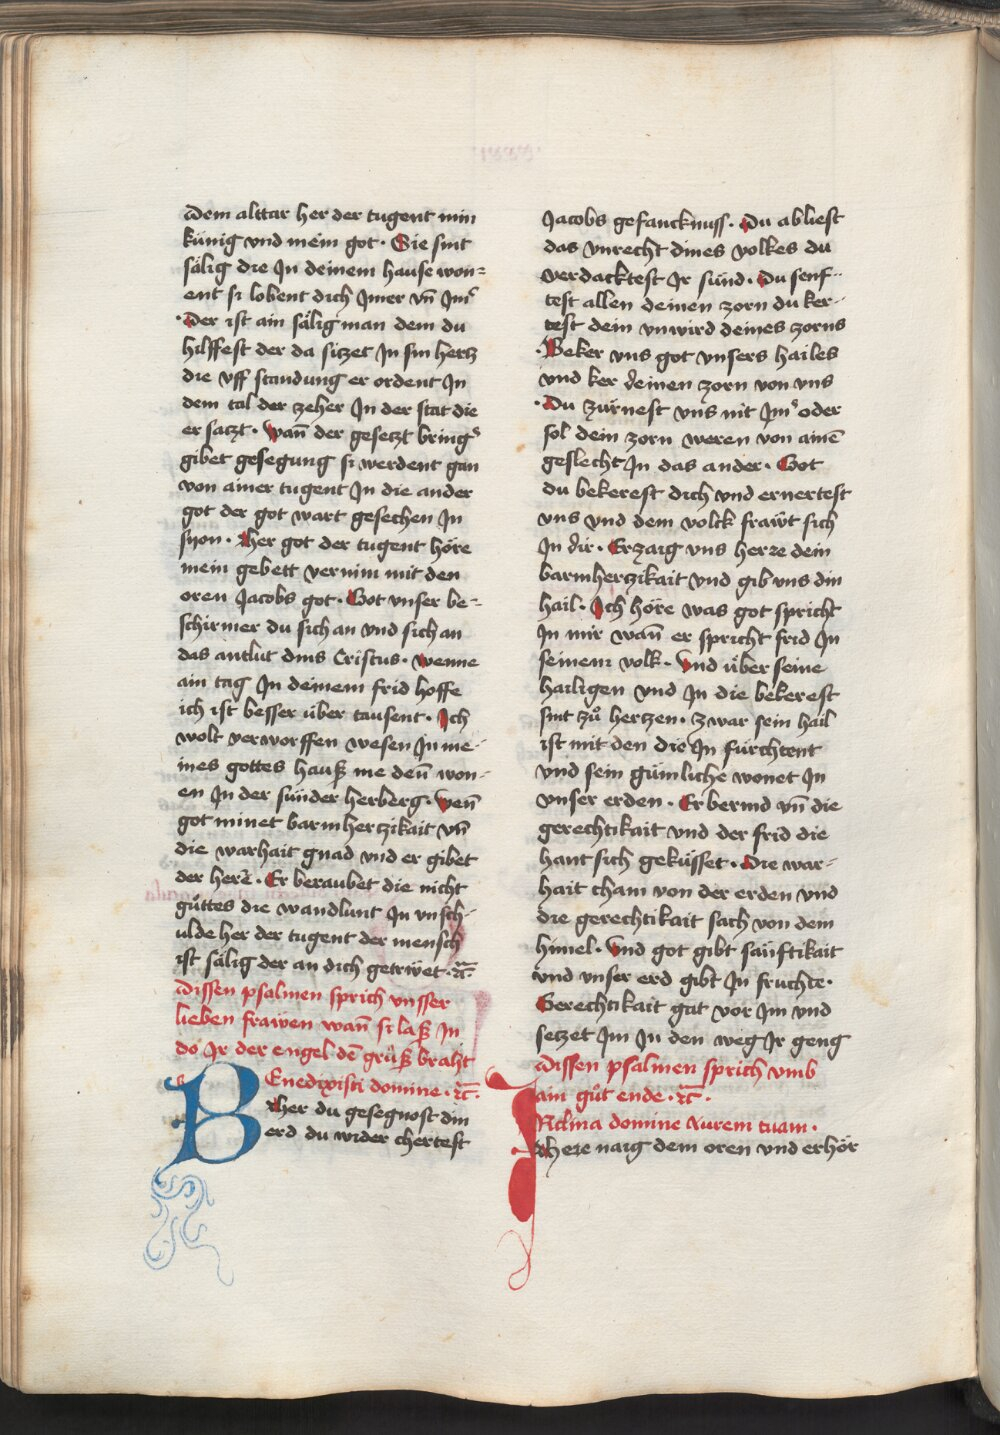 dem alttar her der tugent min
künig vnd mein got · Sie sint
sälig die Jn deinem hause won=
ent si lobent dich Jmer vn̄ Jm̉
· Der ist ain sälig man dem du
hilffest der da sitzet Jn sin hertz
die vff standung er ordent Jn
dem tal der zeher Jn der stat die
er satzt · wan̄ der gesetzt bring̉
gibet gesegung si werdent gan
von ainer tugent Jn die ander
got der got wart gesechen Jn
syon · Her got der tugent höre
mein gebett vernim mit den
oren Jacobs got · Got vnser be=
schirmer du sich an vnd sich an
das antlut dins Cristus · wenne
ain tag Jn deinem frid hoffe
ich ist besser über tausent · Jch
wolt verworffen wesen Jn me-
ines gottes hauß me den̄ won-
en Jn der sünder herberg · wen̄
got minet barmhertzikait vn̄
die warhait gnad vnd er gibet
der herē · Er beraubet die nicht
gůttes die wandlunt Jn vnsch-
ulde her der tugent der mensch
ist sälig der an dich getrwet · ꝛc̄
dissen psalmen sprich vnsser
lieben frawen wan̄ si laß Jn
do Jr der engel dē grůß braht
BEnedixisti domine · ꝛc̄ ·
Her du gesegnost din
erd du wider chertest
Jacobs gefancknuss · Du abliest
das vnrecht dines volkes du
verdacktest Jr sünd · Du senf-
test allen deinen zorn du ker-
test dem vnwird deines zorns
· Beker vns got vnsers hailes
vnd ker deinen zorn von vns
· Du zürnest vns nit Jm̉ oder
sol dein zorn weren von ainē
geslecht Jn das ander · Got
du bekerest dich vnd ernertest
vns vnd dem volck frawt sich
Jn dir · Erzaig vns herre dein
barmhertzikait vnd gib vns din
hail · Jch höre was got spricht
Jn mir wan̄ er spricht frid Jn
seinem volk · Vnd über seine
hailigen vnd Jn die bekerest
sint zů hertzen · zwar sein hail
ist mit den die Jn fürchtent
vnd sein günliche wonet Jn
vnser erden · Er bermd vn̄ die
gerechtikait vnd der frid die
hant sich geküsset · Die war-
hait cham von der erden vnd
die gerechtikait sach von dem
himel · Vnd got gibt säuftikait
vnd vnser erd gibt Jn fruchte ·
Gerechtikait gat vor Jm vnd
setzet Jm Jn den weg Jr geng
dissen psalmen sprich vmb
ain gůt ende · ꝛc̄ ·
JNclina domine Aurem tuam ·
Here naig dem oren vnd erhör